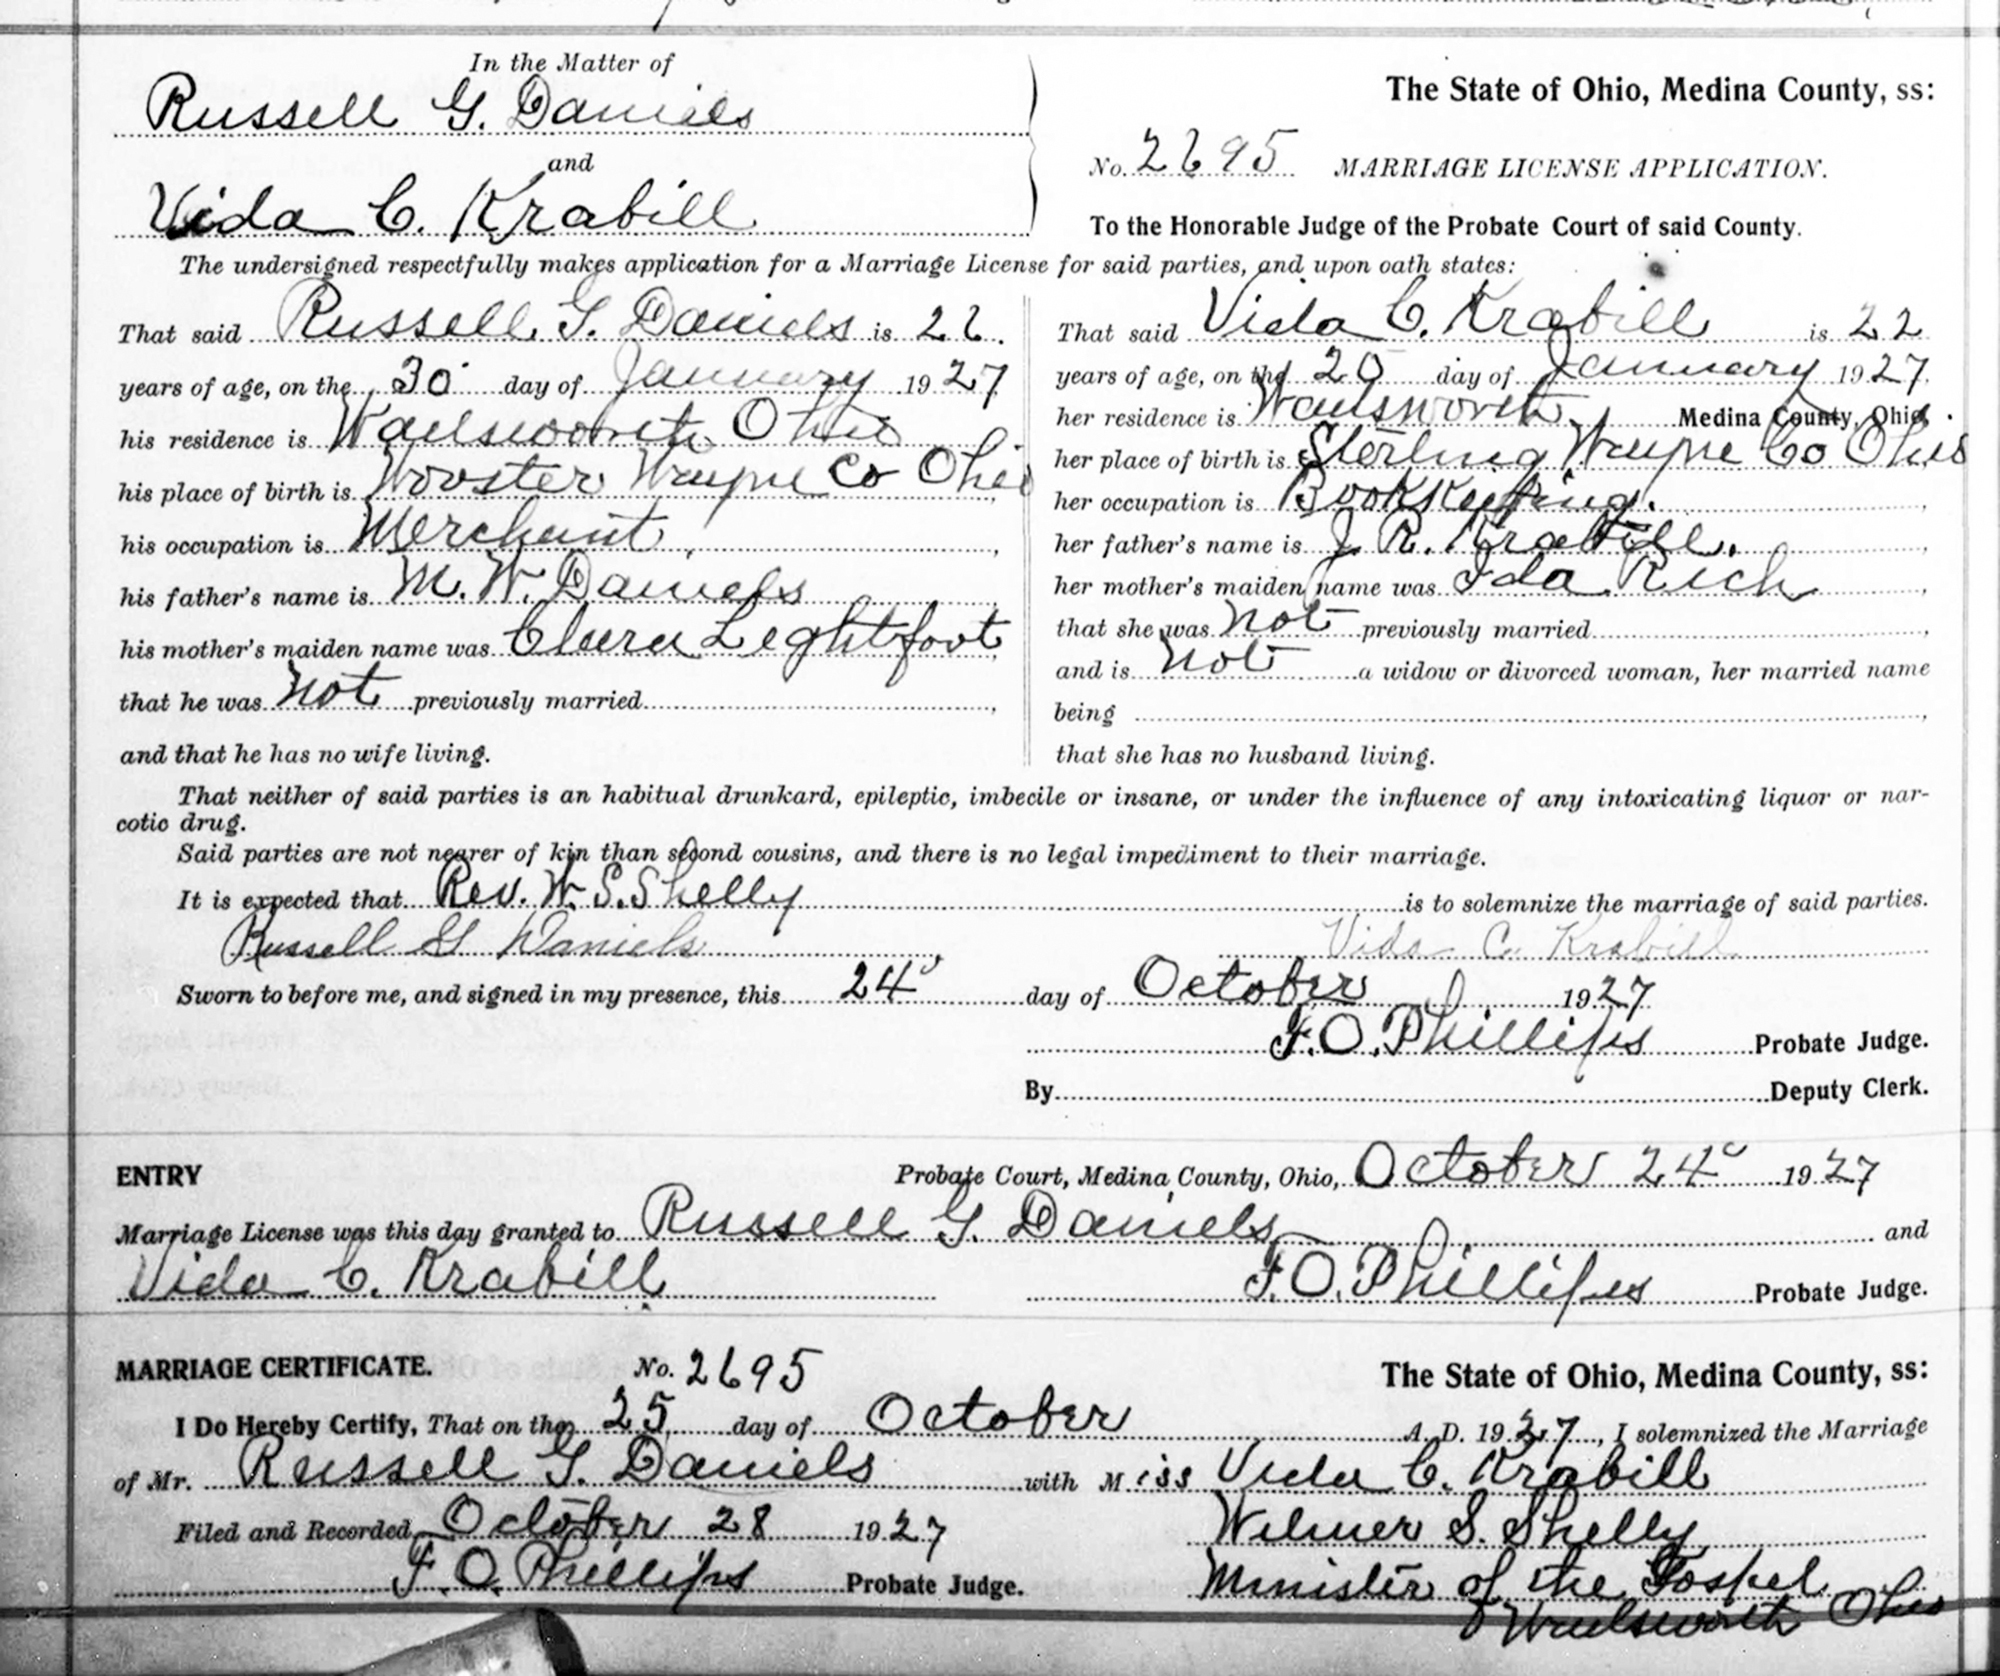 In the Matter of
Russell G. Daniels
and
Vida C. Krabill
The State of Ohio, Medina County, ss:
No. 2695 MARRIAGE LICENSE APPLICATION.
To the Honorable Judge of the Probate Court of said County.
The undersigned respectfully makes application for a Marriage License for said parties, and upon oath states:
That said Russell G. Daniels is
years of age, on the 30 day of January 1927
his residence is Wadsworth Ohio
his place of birth is Wooster Wayne Co Ohio,
his occupation is Merchant,
his father's name is M. W. Daniels
his mother's maiden name was Clara Leghtfoot,
that he was not previously married,
and that he has no wife living.
That said Vida C. Krabill is 22
years of age, on the day of January 1927.
her residence is Wadsworth, Medina County, Ohio.
her place of birth is Sterling Wayne Co Ohio
her occupation is BookKeeping.,
her father's name is J. R. Krabill.,
her mother's maiden name was Ida Rich,
that she was not previously married,
and is not a widow or divorced woman, her married name
being ,
that she has no husband living.
That neither of said parties is an habitual drunkard, epileptic, imbecile or insane, or under the influence of any intoxicating liquor or nar-
cotic drug.
Said parties are not nearer of kin than second cousins, and there is no legal impediment to their marriage.
It is expected that Rev. W. S. Shelly is to solemnize the marriage of said parties.
Russell G Daniels, Vida C. Krabill
Sworn to before me, and signed in my presence, this 24" day of October 1927
F. O. Phillips Probate Judge.
By Deputy Clerk.
ENTRY Probate Court, Medina County, Ohio, October 24" 1927
Marriage License was this day granted to Russell G. Daniels and
Vida C. Krabill F. O. Phillips Probate Judge.
MARRIAGE CERTIFICATE. No. 2695 The State of Ohio, Medina County, ss:
I Do Hereby Certify, That on the 25 day of October A. D. 1927, I solemnized the Marriage
of Mr. Russell G. Daniels with Miss Vida C. Krabill
Filed and Recorded October 28 1927 Wilmer S. Shelly
F. O. Phillips Probate Judge. Minister of the Gospel
Wadsworth Ohio